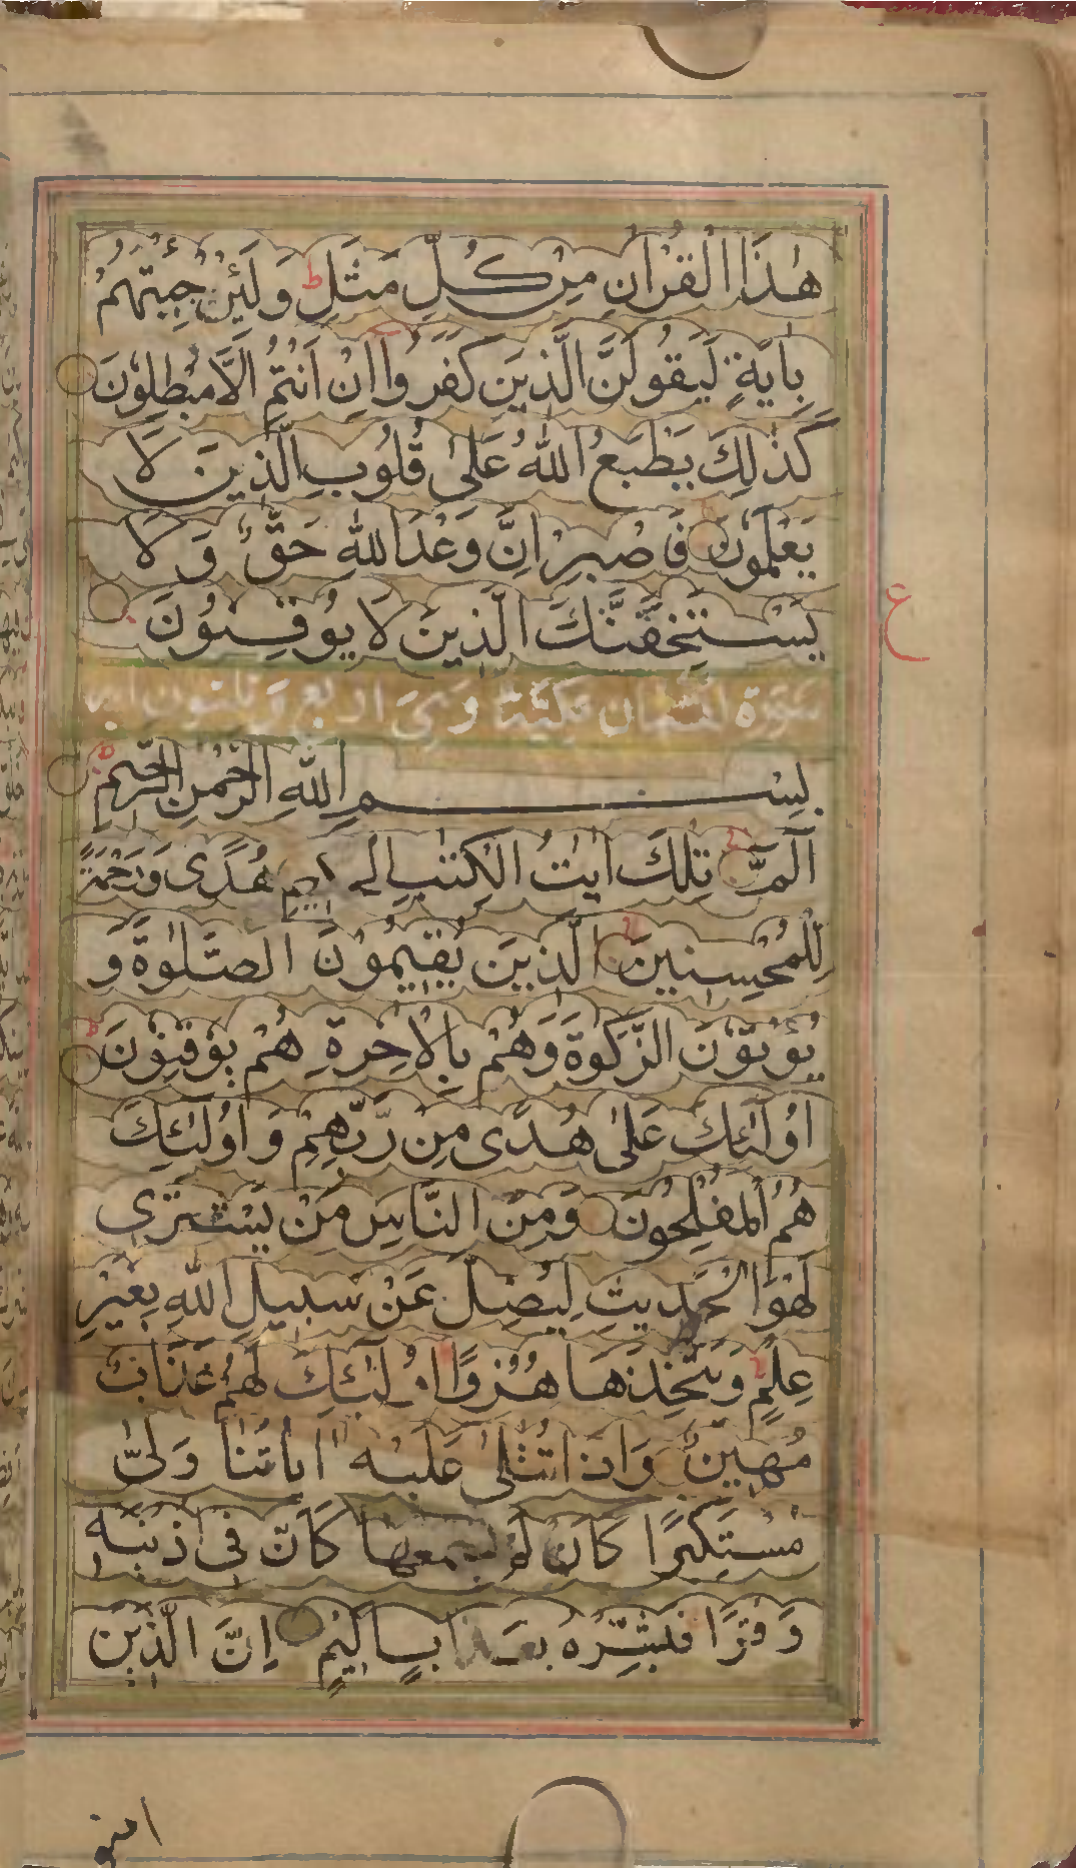 هٰذَا الْقُرْاٰنِ مِنْ كُلِّ مَثَلٍ ط وَلَئِنْ جِئْتَهُمْ
بِاٰيَةٍ لَيَقُولَنَّ الَّذِينَ كَفَرُوا اِنْ اَنْتُمْ اِلَّا مُبْطِلُونَ
كَذٰلِكَ يَطْبَعُ اللّٰهُ عَلٰى قُلُوبِ الَّذِينَ لَا
يَعْلَمُونَ فَاصْبِرْ اِنَّ وَعْدَ اللّٰهِ حَقٌّ وَلَا
يَسْتَخِفَّنَّكَ الَّذِينَ لَا يُوقِنُونَ
ع
سورة لقمان مكية وهي اربع وثلثون اية
بِسْمِ اللّٰهِ الرَّحْمٰنِ الرَّحِيمِ
الٓمّٓ تِلْكَ اٰيٰتُ الْكِتٰبِ الْحَكِيمِ هُدًى وَرَحْمَةً
لِلْمُحْسِنِينَ الَّذِينَ يُقِيمُونَ الصَّلٰوةَ وَ
يُؤْتُونَ الزَّكٰوةَ وَهُمْ بِالْاٰخِرَةِ هُمْ يُوقِنُونَ
اُولٰئِكَ عَلٰى هُدًى مِنْ رَبِّهِمْ وَاُولٰئِكَ
هُمُ الْمُفْلِحُونَ وَمِنَ النَّاسِ مَنْ يَشْتَرِي
لَهْوَ الْحَدِيثِ لِيُضِلَّ عَنْ سَبِيلِ اللّٰهِ بِغَيْرِ
عِلْمٍ وَيَتَّخِذَهَا هُزُوًا اُولٰئِكَ لَهُمْ عَذَابٌ
مُهِينٌ وَاِذَا تُتْلٰى عَلَيْهِ اٰيَاتُنَا وَلّٰى
مُسْتَكْبِرًا كَاَنْ لَمْ يَسْمَعْهَا كَاَنَّ فِي اُذُنَيْهِ
وَقْرًا فَبَشِّرْهُ بِعَذَابٍ اَلِيمٍ اِنَّ الَّذِينَ
امنو